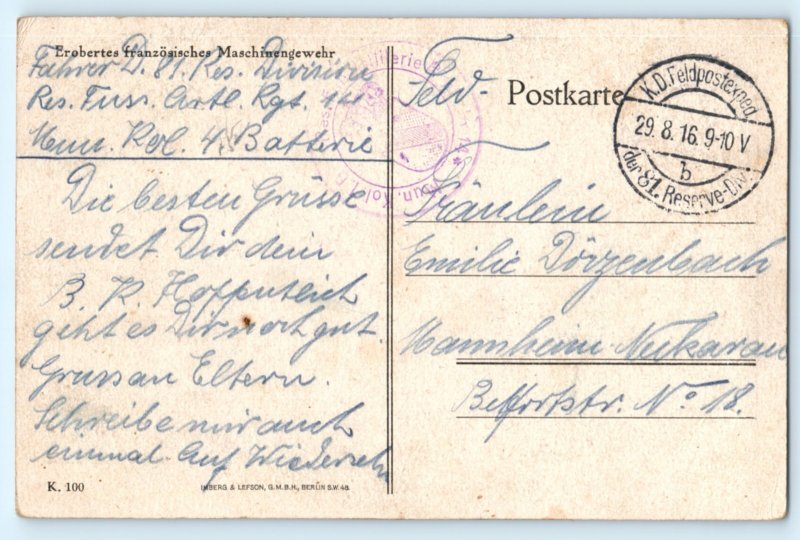 Erobertes französisches Maschinengewehr
Fahrer D. 81. Res. Division
Res. Fuss. Artl. Rgt. 14
Mun. Kol. 4. Batterie
Die besten Grüsse
sendet Dir dein
B. K. Hoffentlich
geht es Dir noch gut.
Gruss an Eltern.
Schreibe mir auch
einmal Auf Wiedersehn
K. 100
IMBERG & LEFSON, G.M.B.H., BERLIN S.W. 48.
Feld- Postkarte
K.D. Feldpostexped.
29.8.16.9-10 V
b
der 81. Reserve-Div.
Mun. Kol.
Fräulein
Emilie Dörzenbach
Mannheim-Neckarau
Belfortstr. No 18.